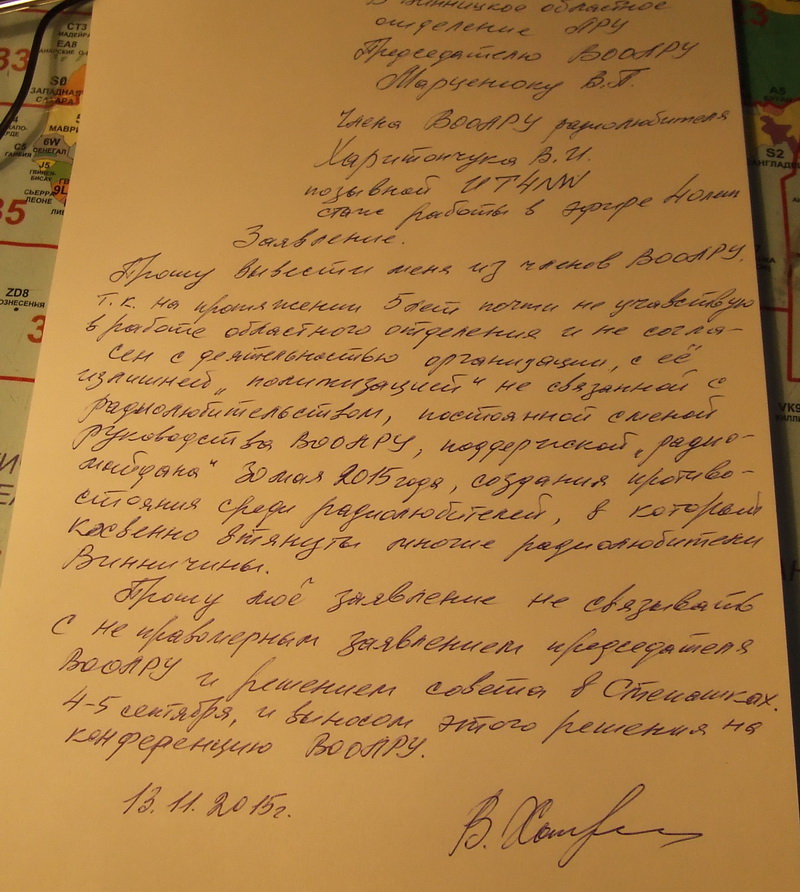 В Винницкое областное
отделение ЛРУ
Председателю ВООЛРУ
Марценюку В.П.
Члена ВООЛРУ радиолюбителя
Харитончука В.И.
позывной UT4NW
стаж работы в эфире 40лет
Заявление.
Прошу вывести меня из членов ВООЛРУ.
Т.к. на протяжении 5 лет почти не учавствую
в работе областного отделения и не согла-
сен с деятельностью организации, с её
излишней „политизацией" не связанной с
радиолюбительством, постоянной сменой
руководства ВООЛРУ, поддержкой „радио-
майдана" 30 мая 2015 года, создания противо-
стояния среди радиолюбителей, в который
косвенно втянуты многие радиолюбители
Винничины.
Прошу моё заявление не связывать
с не правомерным заявлением председателя
ВООЛРУ и решением совета в Степашках.
4-5 сентября, и выносом этого решения на
конференцию ВООЛРУ.
13.11.2015г.
В.
СТ3
ЕА8
S0
ЗАПАДНАЯ
САХАРА
6W
СЕНЕГАЛ
С5
ГАМБИЯ
J5
ГВИНЕЯ-
БИСАУ
СЬЕРРА
ЛЕОНЕ
9L
35
ZD8
ВОЗНЕСЕНИЯ
33
3
A5
S2
VK9